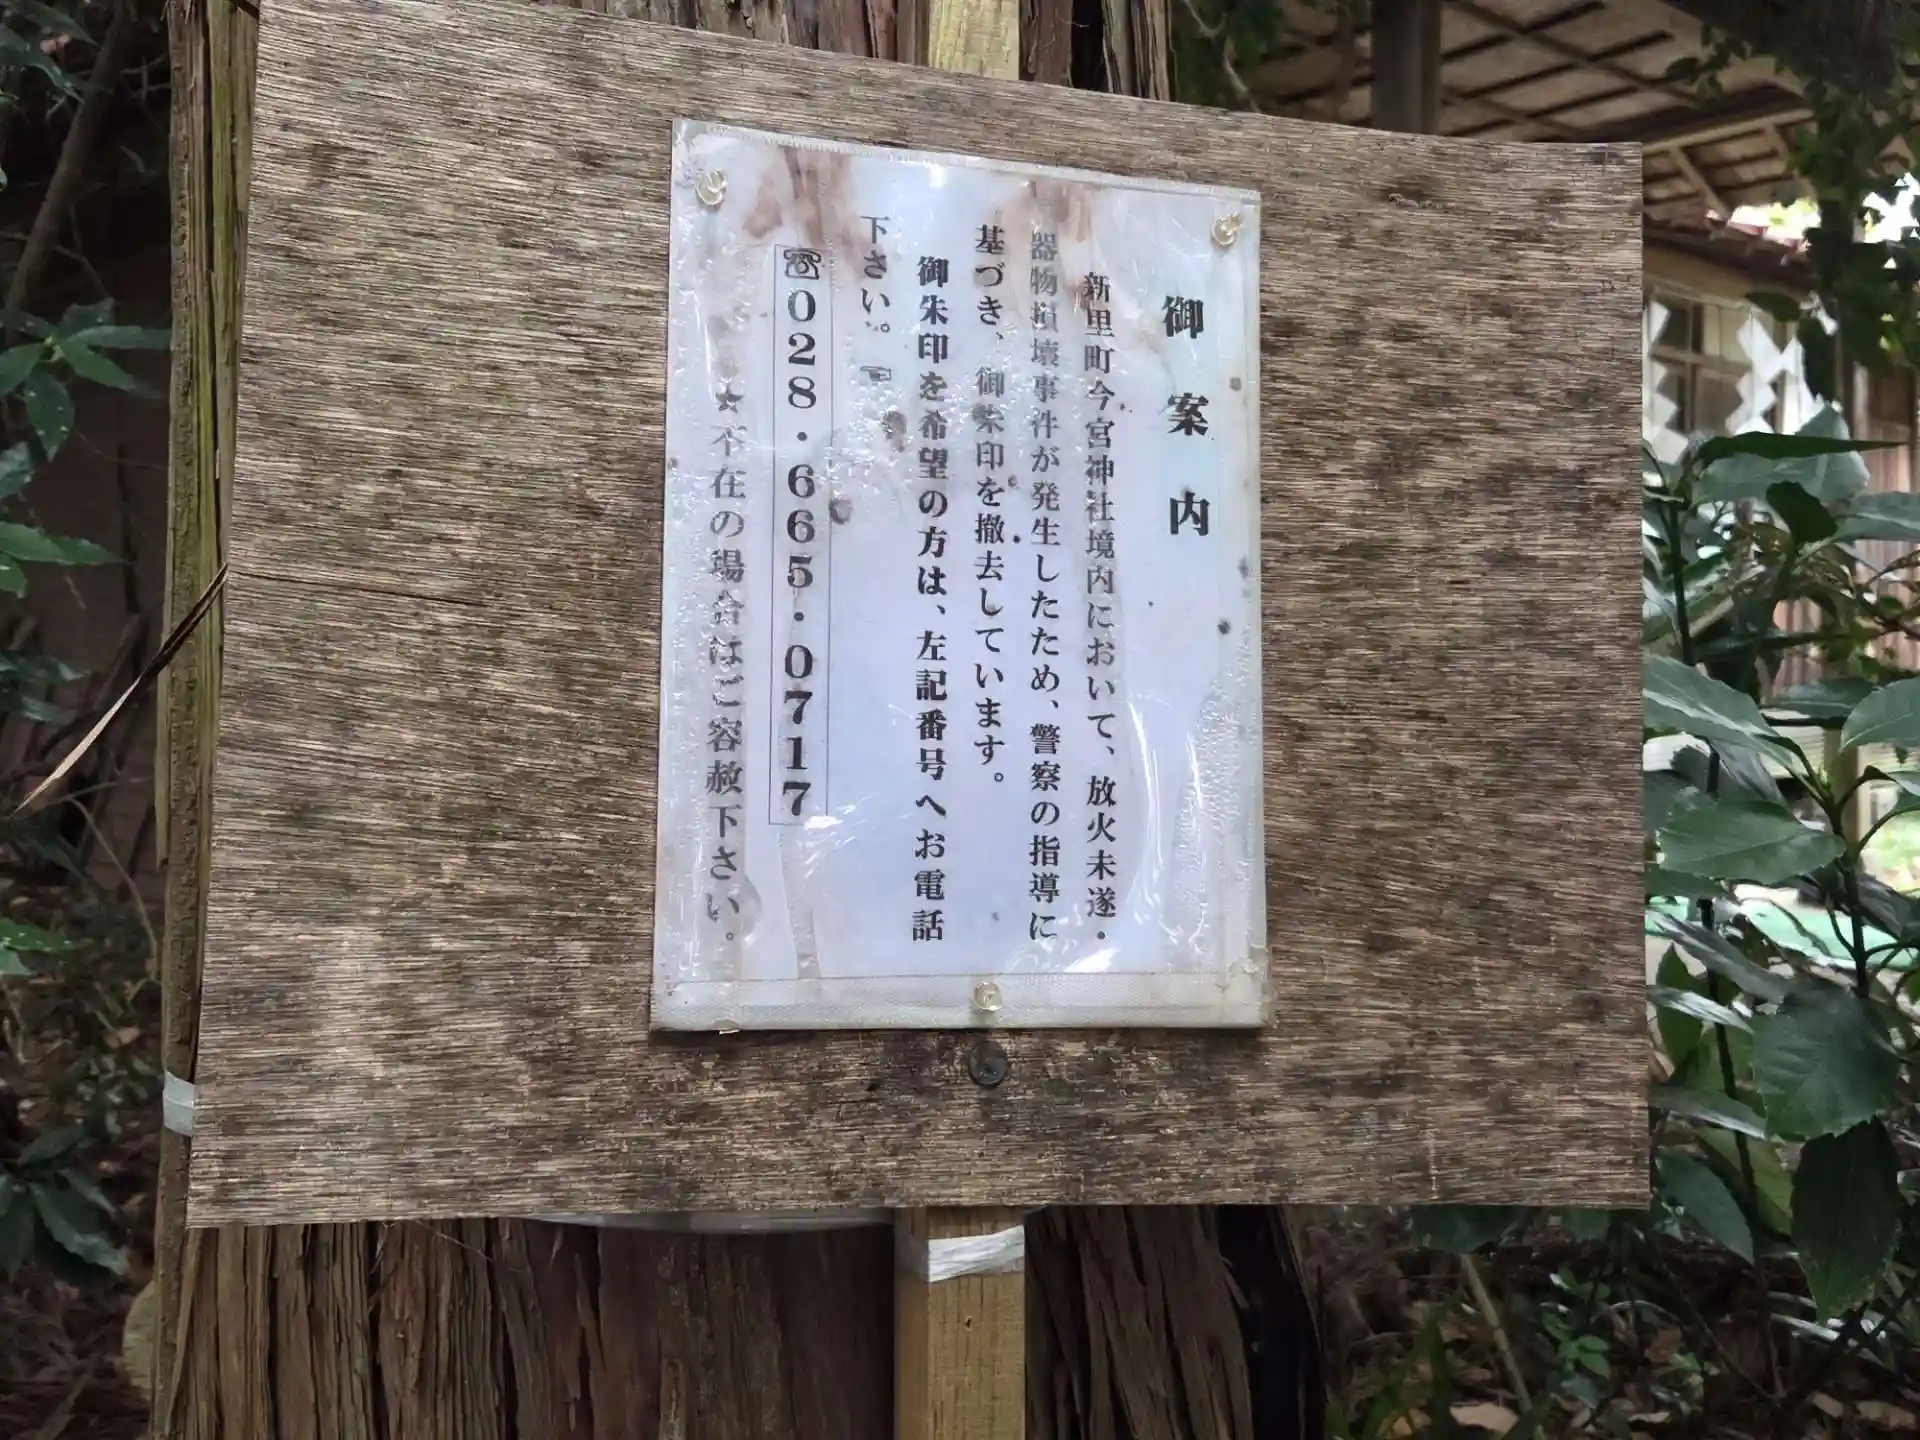 御案内
新里町今宮神社境内において、放火未遂・
器物損壊事件が発生したため、警察の指導に
基づき、御朱印を撤去しています。
御朱印を希望の方は、左記番号へお電話
下さい。☜
☎028・665・0717
★不在の場合はご容赦下さい。